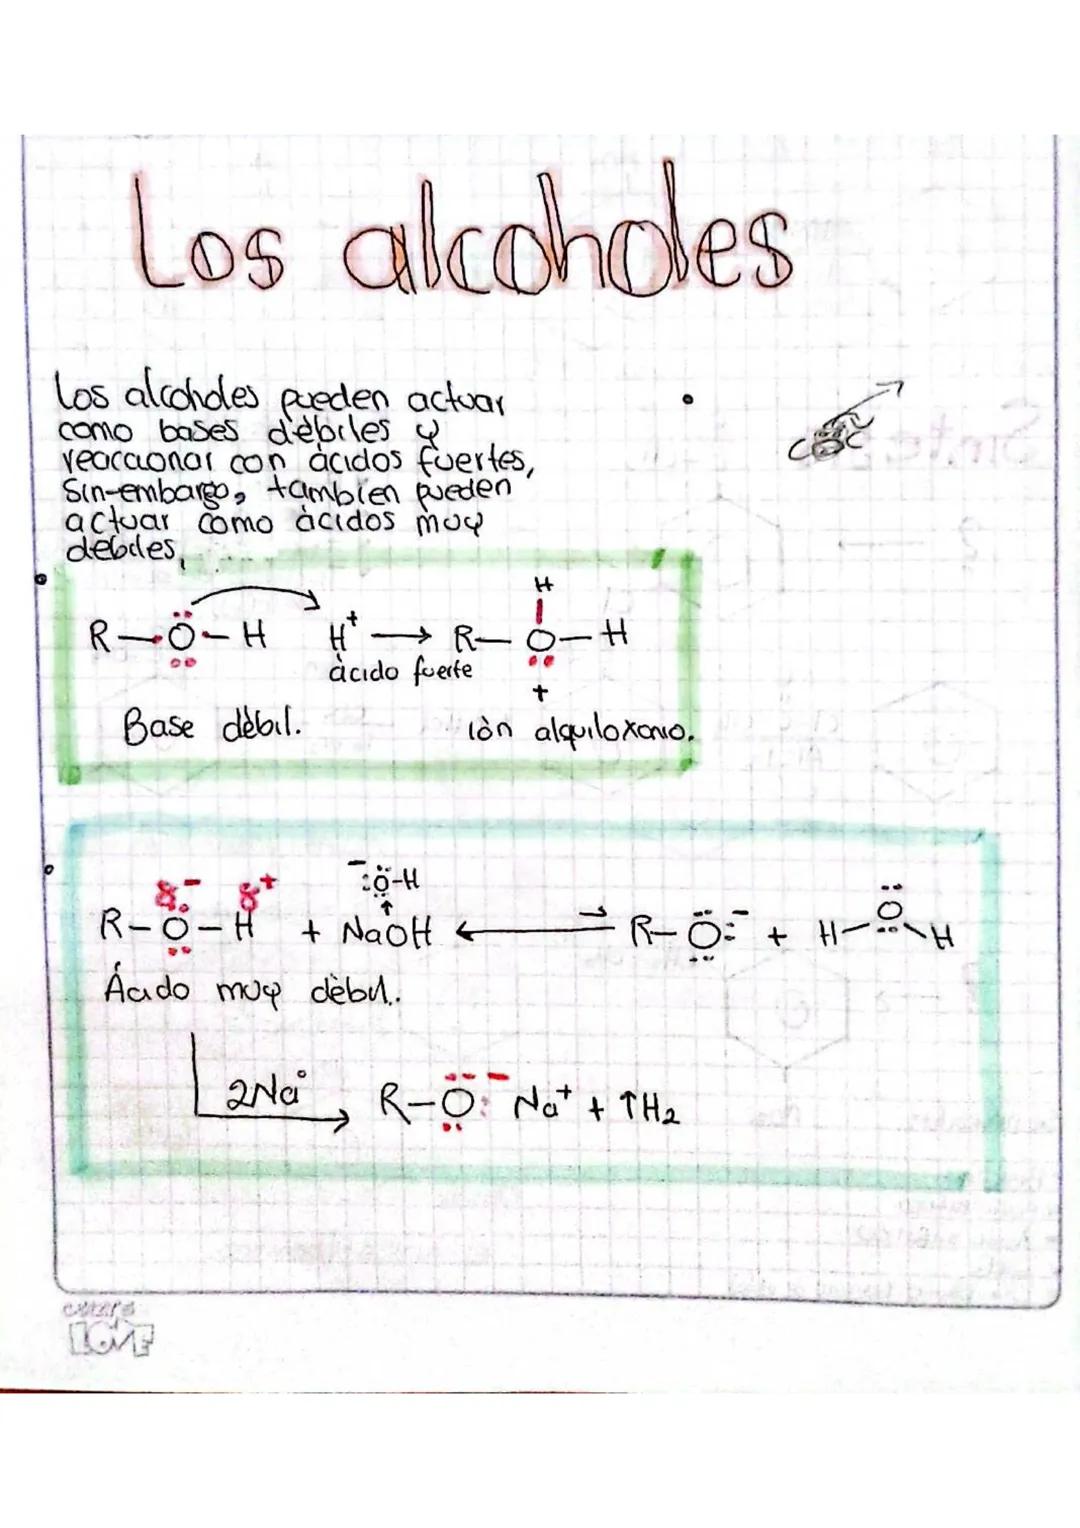 Los alcoholes
Los alcoholes pueden actuar
como bases débiles y
reaccionar con àcidos fuertes,
Sin-embargo, tambien pueden
actuar como àcidos muy
debiles,
H
R—Ö—H H⁺ → R—O—H
àcido fuerte
+
Base dèbil. iòn alquiloxonio.
⁻:Ö-H
δ⁻ δ⁺
R-O-H + NaOH ⇌ R-Ö:⁻ + H-O-H
Ácido muy dèbil..
2Na° R-O:⁻ Na⁺ + ↑H₂
LOVE